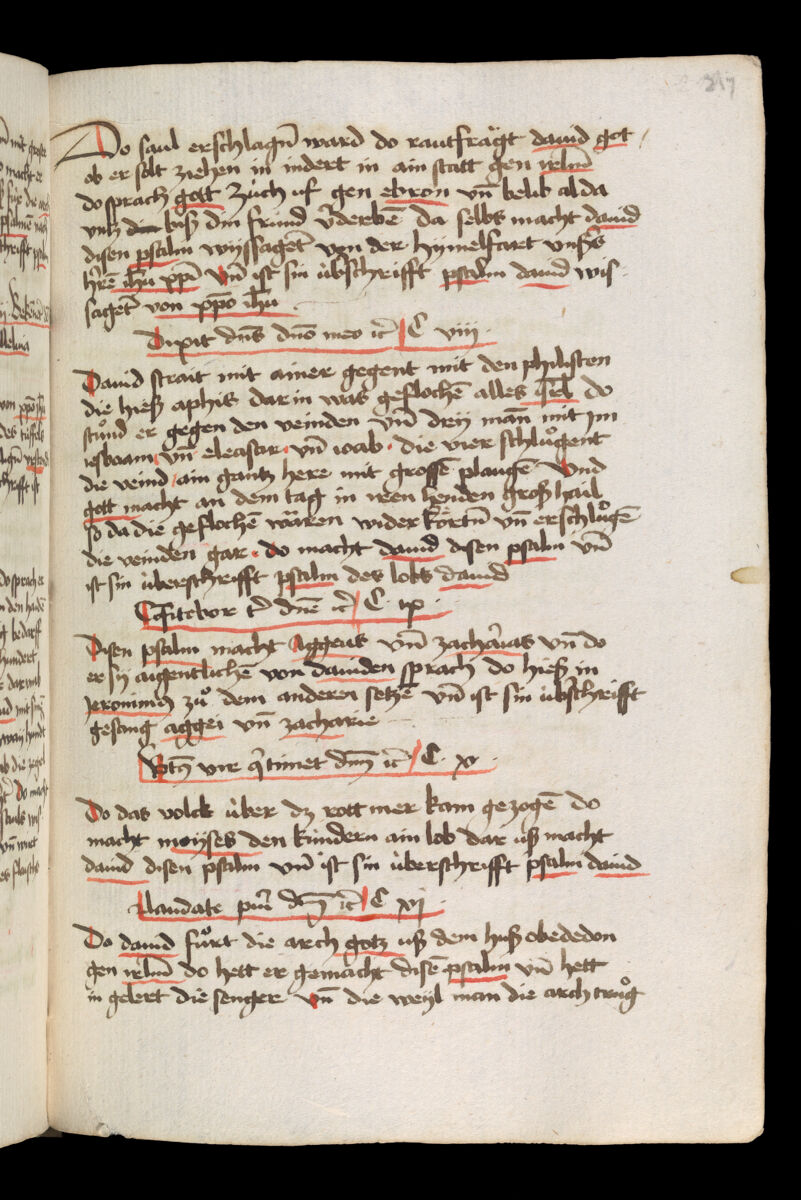 217
Do saul erschlagñ ward do rautfrägt dauid got
ob er sölt ziehen in indert in ain statt gen irlm̄
do sprach gott zuch uf gen ebron vn̄ belib alda
vntz din buß din fründ v̓derbē da selbs macht dauid
disen psalm wyssaget̄ von der hymelfart vnsers
h̓rē ih̄u xp̄i vn̄ ist sin üb̓schrifft psalm dauid wis
saget̄ von xp̄o ih̄u
Dixit dn̄s dn̄o meo ic̄ C viii
Dauid strait mit ainer gegent mit den philisten
die hieß aphis darin was geflochē alles isr̄l do
stůnd er gegen den veinden vn̄ drij man̄ mit im
iesboam vn̄ eleasar vn̄ ioab die vier schlůgent
die veind ain gantz here mit grossē plaugē vnd
gott macht an dem tag in iren henden groß hail
so da die geflochē wären wider körtn̄ vn̄ erschlůgē
die veinden gar do macht dauid disen psalm vn̄
ist sin überschrifft psalm des lobs dauid
Confitebor t̄ dn̄e ic̄ C ix
Disen psalm macht Aggeus vn̄ zacharias vn̄ do
er sij augentlichē von dauiden sprach do hieß in
Jeronimus zů dem anderen setzē vn̄ ist sin üb̓schrifft
gesang aggei vn̄ zacharie
Btūs vir q̓ timet dn̄m ic̄ C x
Do das volck über dz rott mer kam gezogē do
macht moyses den kindern ain lob dar uß macht
dauid disen psalm vn̄ ist sin überschrifft psalm dauid
Laudate pūi dm̄ ic̄ C xi
Do dauid fůrt die arch gotz uß dem huß obededon
gen irlm̄ do hett er gemacht disē psalm vn̄ hett
in gelert die senger vn̄ die weyl man die arch trůg